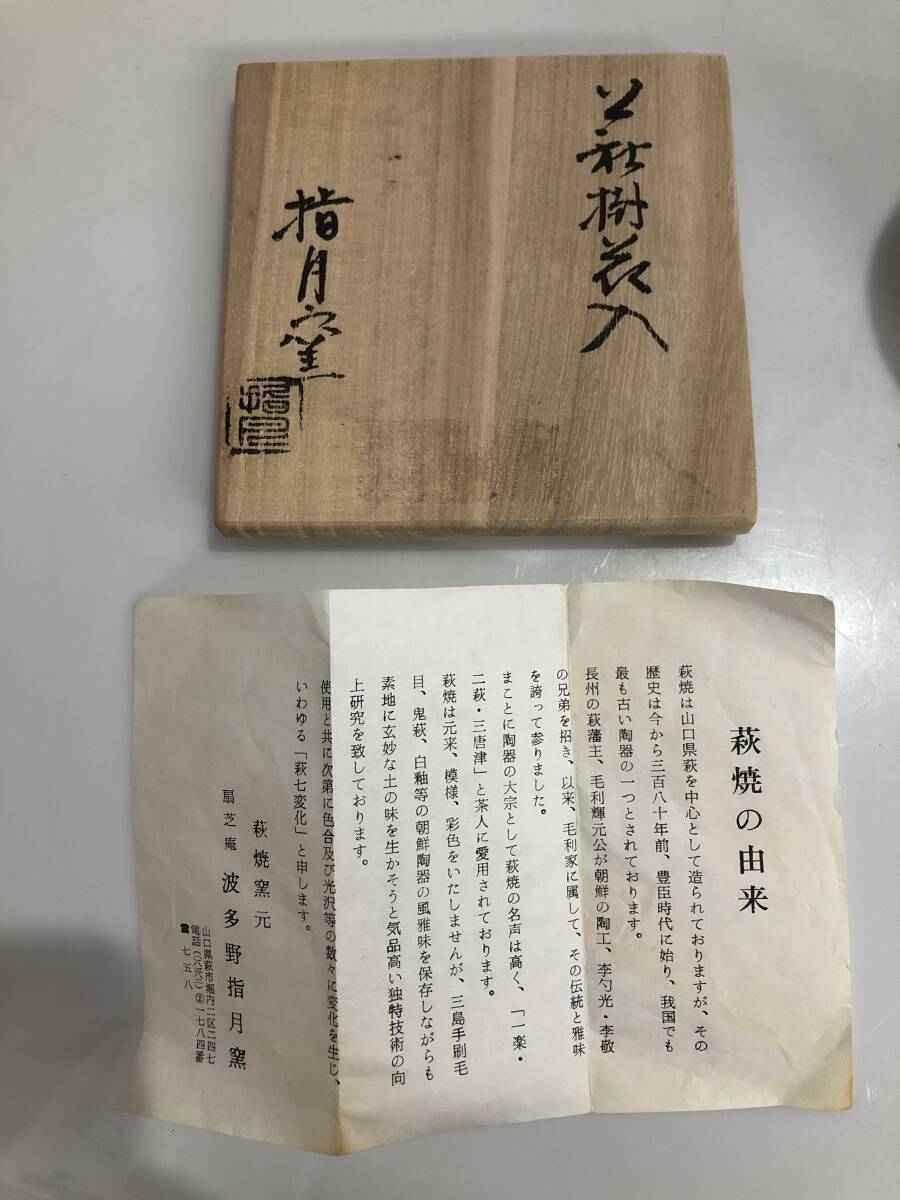 萩掛花入
指月窯
指月
萩焼の由来
萩焼は山口県萩を中心として造られておりますが、その
歴史は今から三百八十年前、豊臣時代に始り、我国でも
最も古い陶器の一つとされております。
長州の萩藩主、毛利輝元公が朝鮮の陶工、李勺光・李敬
の兄弟を招き、以来、毛利家に属して、その伝統と雅味
を誇って参りました。
まことに陶器の大宗として萩焼の名声は高く、「一楽・
二萩・三唐津」と茶人に愛用されております。
萩焼は元来、模様、彩色をいたしませんが、三島手刷毛
目、鬼萩、白釉等の朝鮮陶器の風雅味を保存しながらも
素地に玄妙な土の味を生かそうと気品高い独特技術の向
上研究を致しております。
使用と共に次第に色合及び光沢等の数々に変化を生じ、
いわゆる「萩七変化」と申します。
萩焼窯元
扇芝庵 波多野指月窯
山口県萩市堀内二区二四七
電話 ②一七八四番
七五八